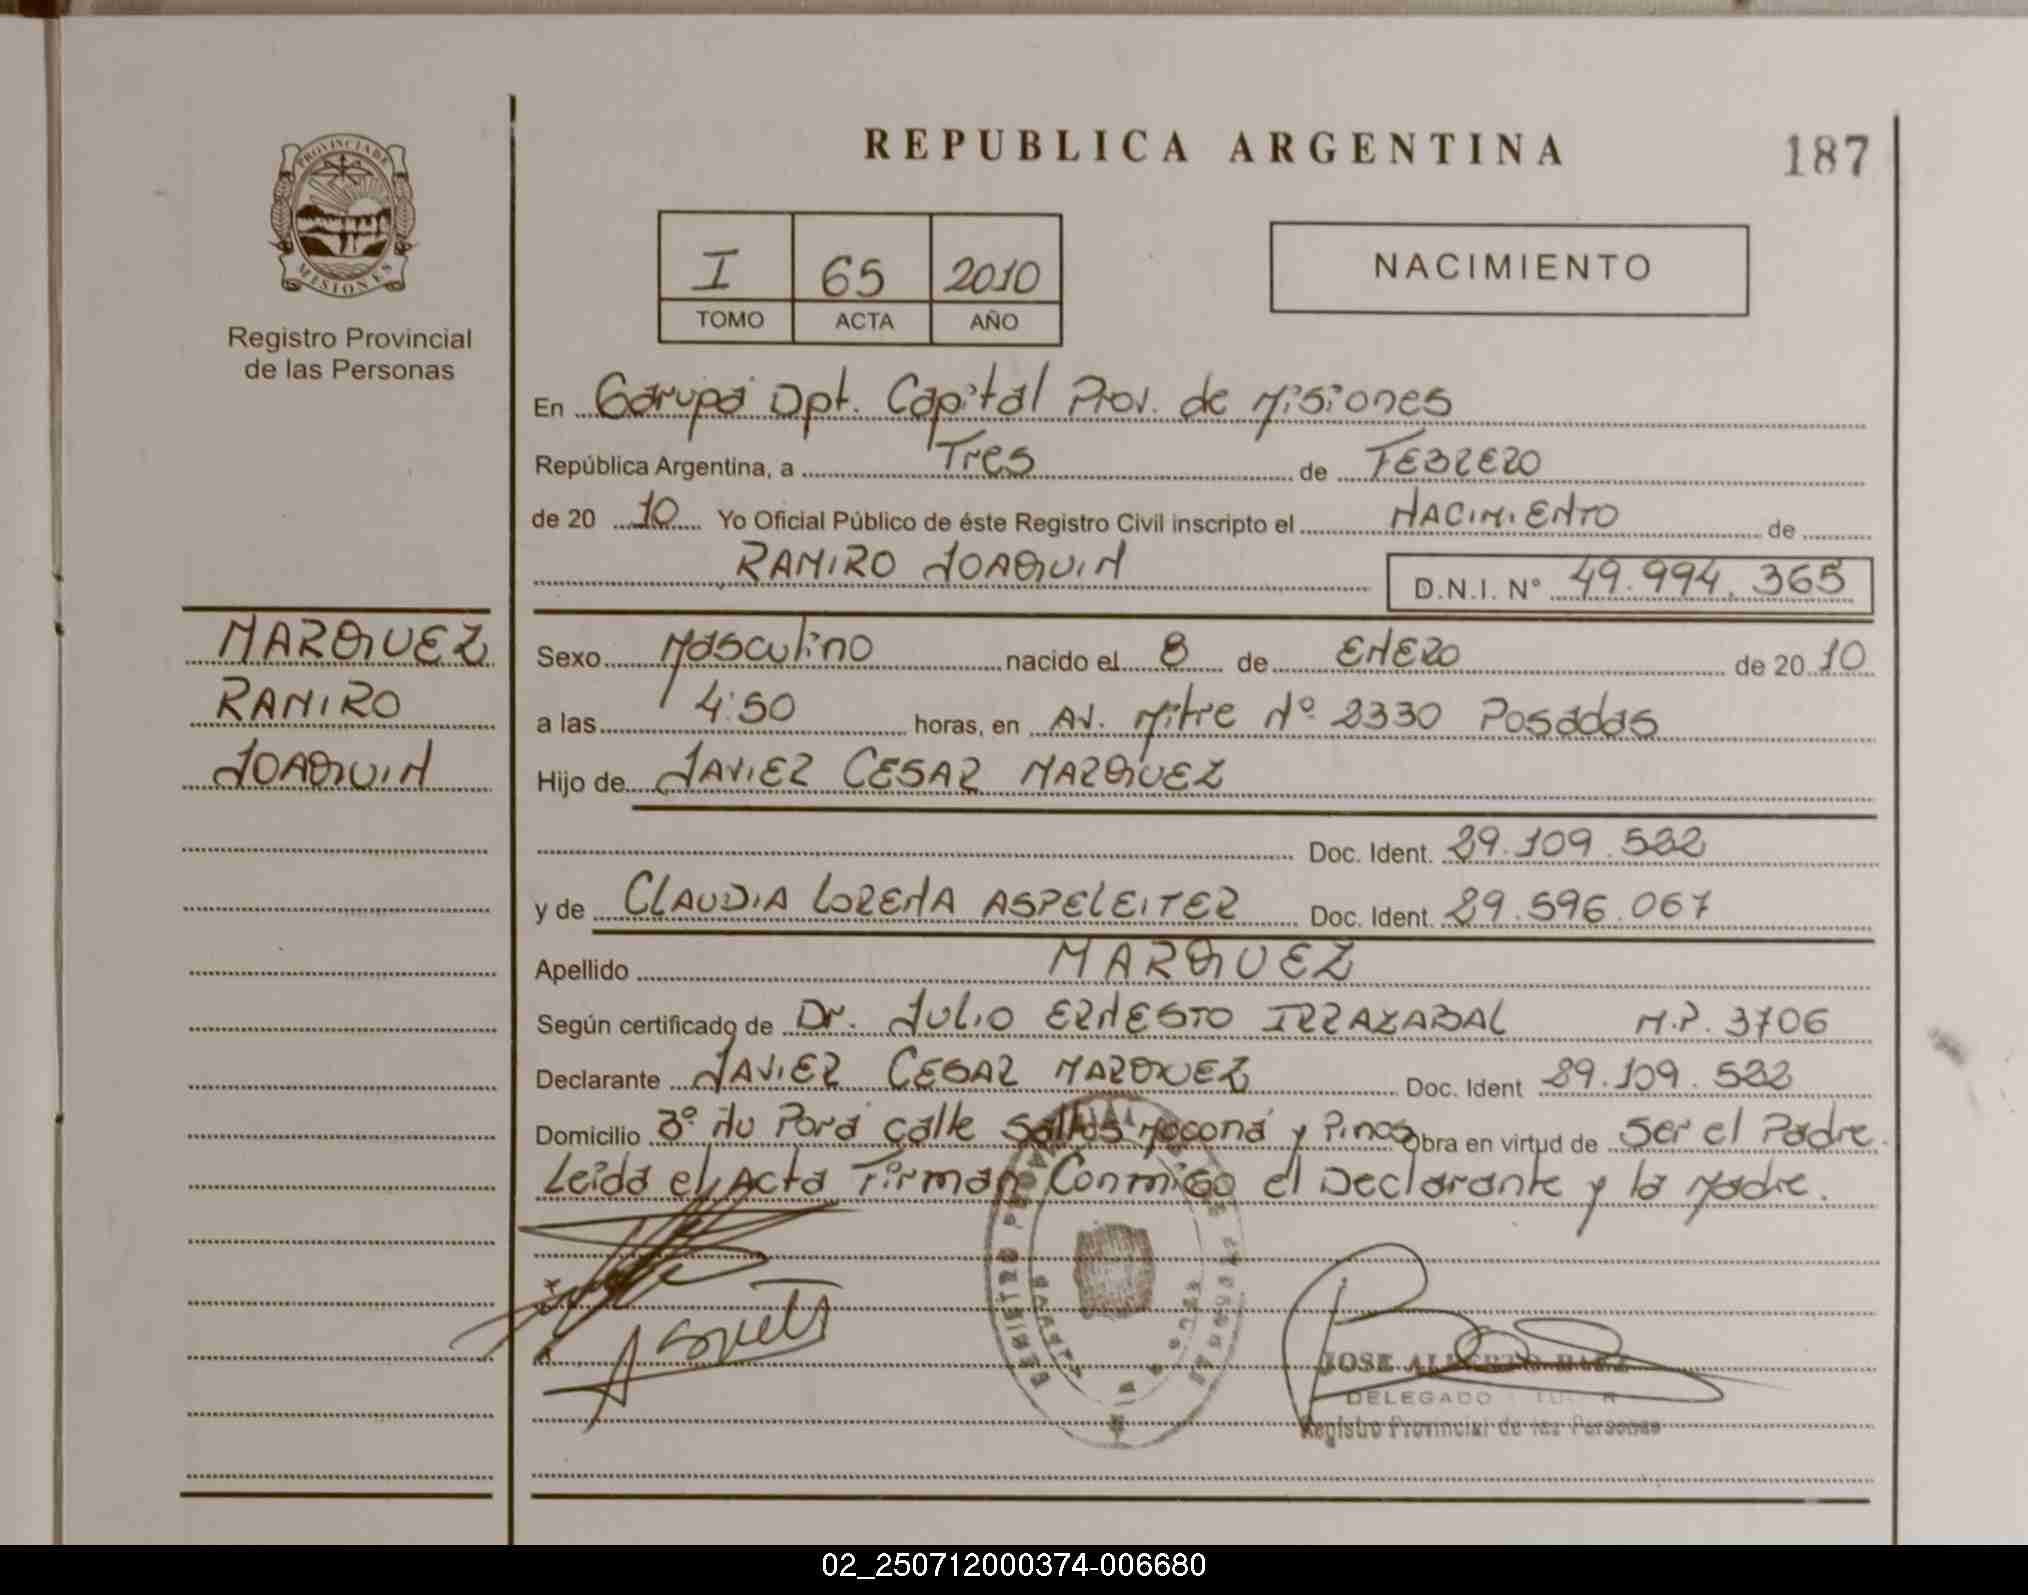 REPUBLICA ARGENTINA
187
PROVINCIA DE
MISIONES
Registro Provincial
de las Personas
I 65 2010
TOMO ACTA AÑO
NACIMIENTO
En Garupá Dpt. Capital Prov. de Misiones
República Argentina, a Tres de FEBRERO
de 20 10 Yo Oficial Público de éste Registro Civil inscripto el NACIMIENTO de
RAMIRO JOAQUIN D.N.I. N° 49.994.365
MARQUEZ
RAMIRO
JOAQUIN
Sexo Masculino nacido el 8 de ENERO de 20 10
a las 4:50 horas, en Av. Mitre Nº 2330 Posadas
Hijo de JAVIER CESAR MARQUEZ
Doc. Ident. 29.109.522
y de CLAUDIA LORENA ASPELEITER Doc. Ident. 29.596.067
Apellido MARQUEZ
Según certificado de Dr. JULIO ERNESTO IRRAZABAL M.P. 3706
Declarante JAVIER CESAR MARQUEZ Doc. Ident 29.109.522
Domicilio Bº Ñu Pora calle Saltos Mocona y Pinos Obra en virtud de Ser el Padre.
Leida el Acta Firman Conmigo el Declarante y la Madre.
JOSE ALBERTO
DELEGADO
Registro Provincial de las Personas
02_250712000374-006680